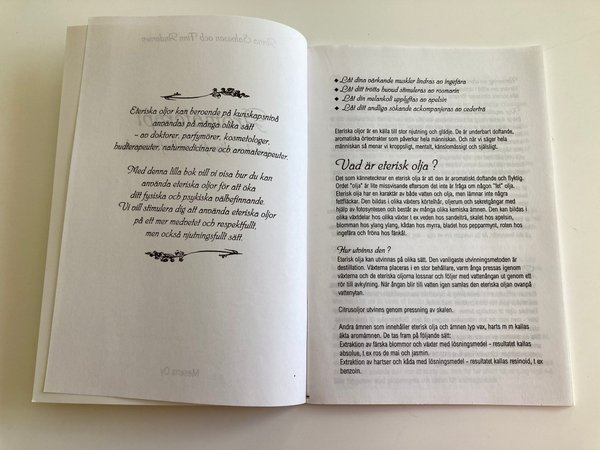 Eteriska oljor kan beroende på kunskapsnivå
användas på många olika sätt
- av doktorer, parfymörer, kosmetologer,
hudterapeuter, naturmedicinare och aromaterapeuter.
Med denna lilla bok vill vi visa hur du kan
använda eteriska oljor för att öka
ditt fysiska och psykiska välbefinnande.
Vi vill stimulera dig att använda eteriska oljor
på ett mer medvetet och respektfullt,
men också njutningsfullt sätt.
Låt dina värkande muskler lindras av ingefära
Låt ditt trötta huvud stimuleras av rosmarin
Låt din melankoli upplyftas av apelsin
Låt ditt andliga sökande ackompanjeras av cederträ
Eteriska oljor är en källa till stor njutning och glädje. De är underbart doftande,
aromatiska örtextrakter som påverkar hela människan. Och när vi säger hela
människan så menar vi kroppsligt, mentalt, känslomässigt och själsligt.
Vad är eterisk olja ?
Det som kännetecknar en eterisk olja är att den är aromatiskt doftande och flyktig.
Ordet "olja" är lite missvisande eftersom det inte är fråga om någon "fet" olja.
Eterisk olja har en karaktär av både vatten och olja, men lämnar inte några
fettfläckar. Den bildas i olika växters körtelhår, oljerum och sekretgångar med
hjälp av fotosyntesen och består av många olika kemiska ämnen. Den kan bildas i
olika växtdelar hos olika växter t ex veden hos sandelträ, skalet hos apelsin,
blomman hos ylang ylang, kådan hos myrra, bladet hos pepparmynt, roten hos
ingefära och fröna hos fänkål.
Hur utvinns den ?
Eterisk olja kan utvinnas på olika sätt. Den vanligaste utvinningsmetoden är
destillation. Växterna placeras i en stor behållare, varm ånga passas igenom
växterna och de eteriska oljorna lossnar och följer med vattenångan ut genom ett
rör till avkylning. När ångan blir till vatten igen samlas den eteriska oljan ovanpå
vattenytan.
Citrusoljor utvinns genom pressning av skalen.
Andra ämnen som innehåller eterisk olja och ämnen typ vax, harts m m kallas
äkta aromämnen. De tas fram på följande sätt:
Extraktion av färska blommor och växter med lösningsmedel - resultatet kallas
absolue, t ex ros de mai och jasmin.
Extraktion av hartser och kåda med lösningsmedel - resultatet kallas resinoid, t ex
benzoin.